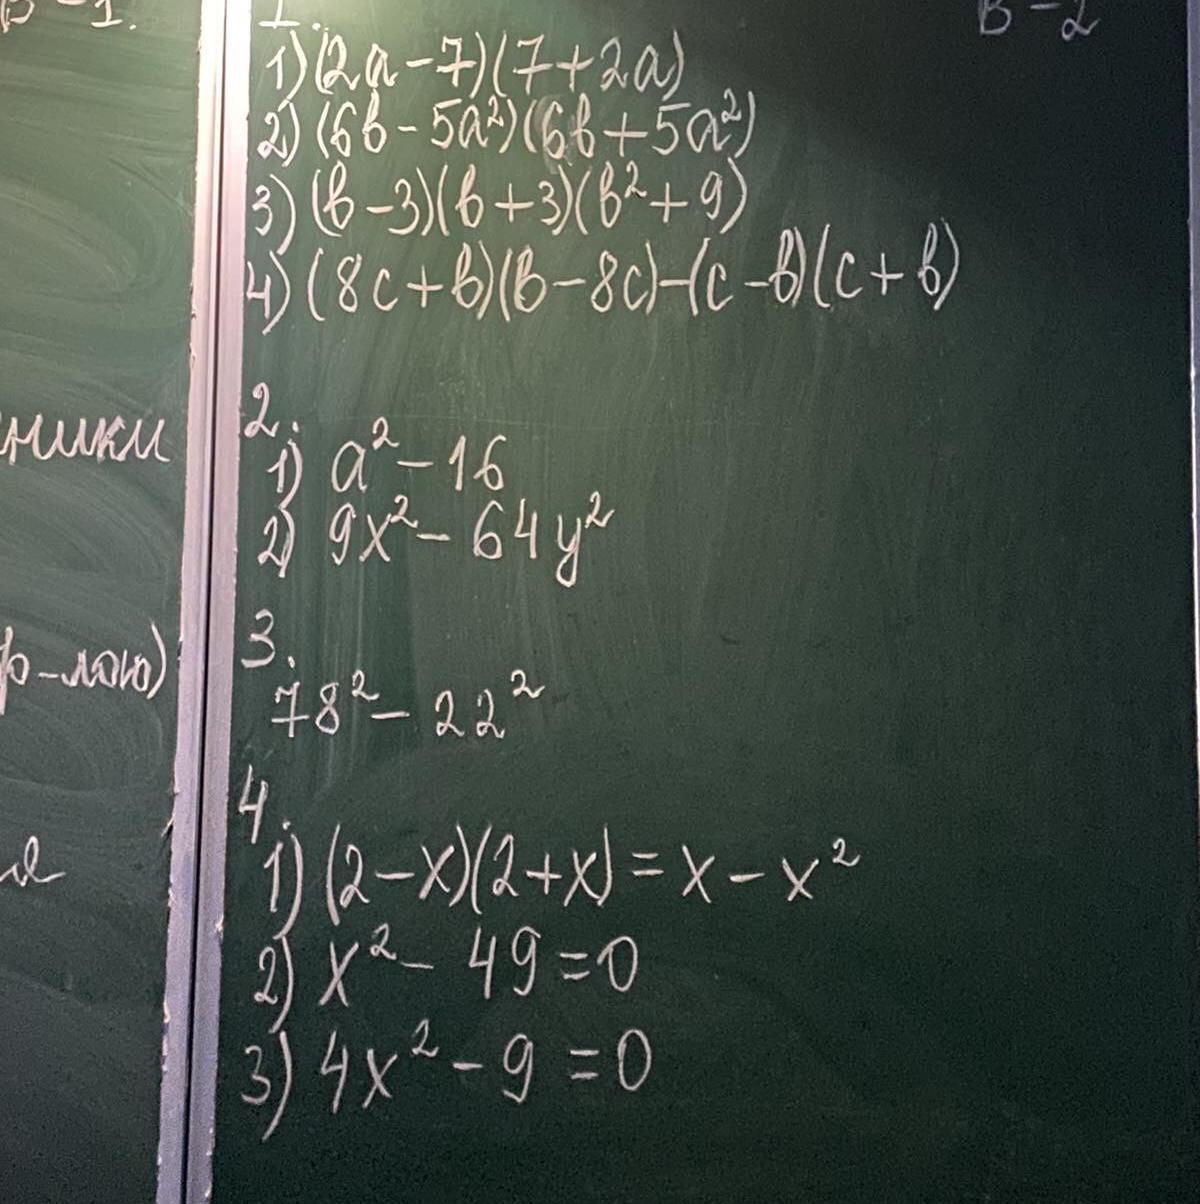 В-1.
1.
В-2
1) (2a-7)(7+2a)
2) (6b-5a²)(6b+5a²)
3) (b-3)(b+3)(b²+9)
4) (8c+b)(b-8c)-(c-b)(c+b)
2.
1) a²-16
2) 9x²-64y²
3.
78²-22²
4.
1) (2-x)(2+x)=x-x²
2) x²-49=0
3) 4x²-9=0
ники
ф-лою)